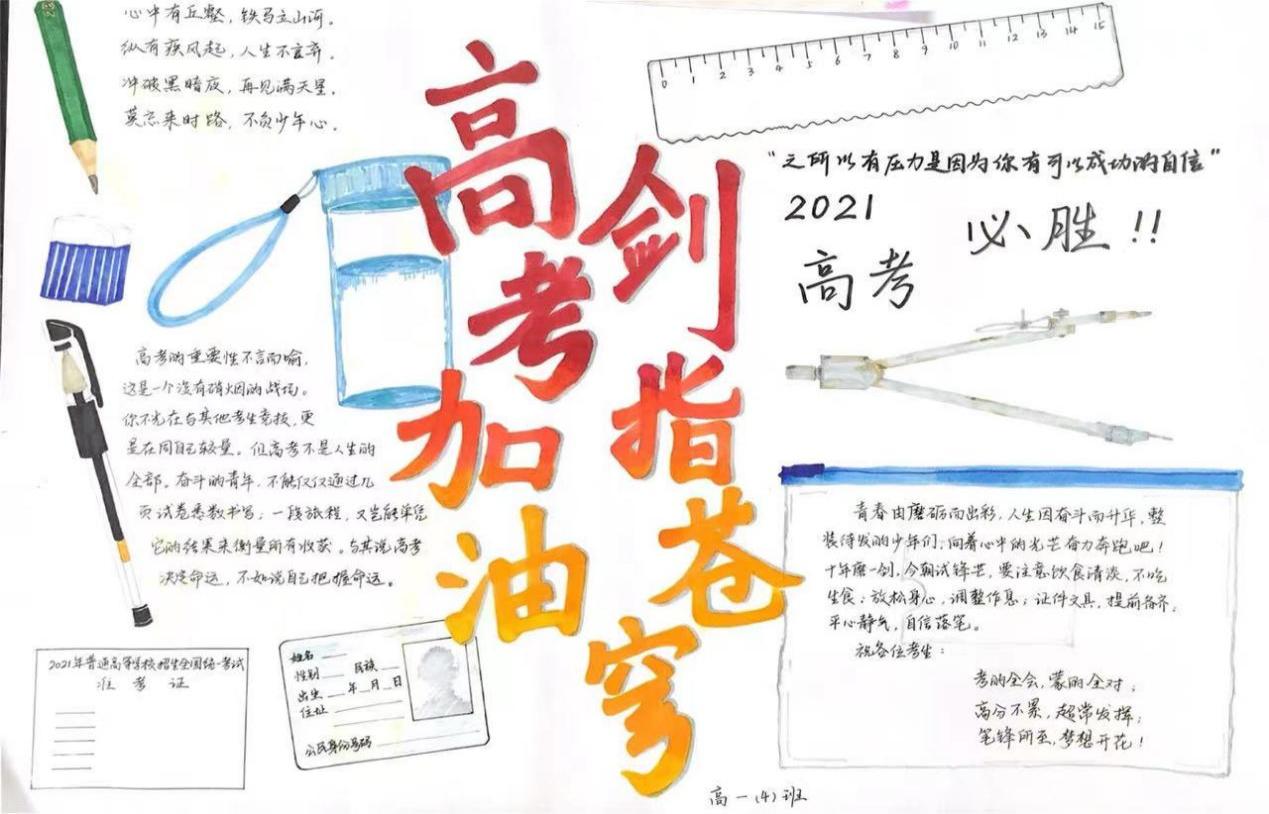 心中有丘壑，铁马立山河。
纵有疾风起，人生不言弃。
冲破黑暗夜，再见满天星。
莫忘来时路，不负少年心。
高考加油
剑指苍穹
0 1 2 3 4 5 6 7 8 9 10 11 12 13 14 15
“之所以有压力是因为你有可以成功的自信”
2021
高考
必胜!!
高考的重要性不言而喻，
这是一个没有硝烟的战场。
你不光在与其他考生竞技，更
是在同自己较量。但高考不是人生的
全部。奋斗的青年，不能仅仅通过几
页试卷悉数书写；一段旅程，又岂能单凭
它的结果来衡量所有收获。与其说高考
决定命运，不如说自己把握命运。
青春由磨砺而出彩，人生因奋斗而升华，整
装待发的少年们，向着心中的光芒奋力奔跑吧！
十年磨一剑，今朝试锋芒，要注意饮食清淡，不吃
生食；放松身心，调整作息；证件文具，提前备齐；
平心静气，自信落笔。
祝各位考生：
考的全会，蒙的全对；
高分不累，超常发挥；
笔锋所至，梦想开花！
2021年普通高等学校招生全国统一考试
准考证
姓名
性别 民族
出生 年 月 日
住址
公民身份号码
高一(4)班